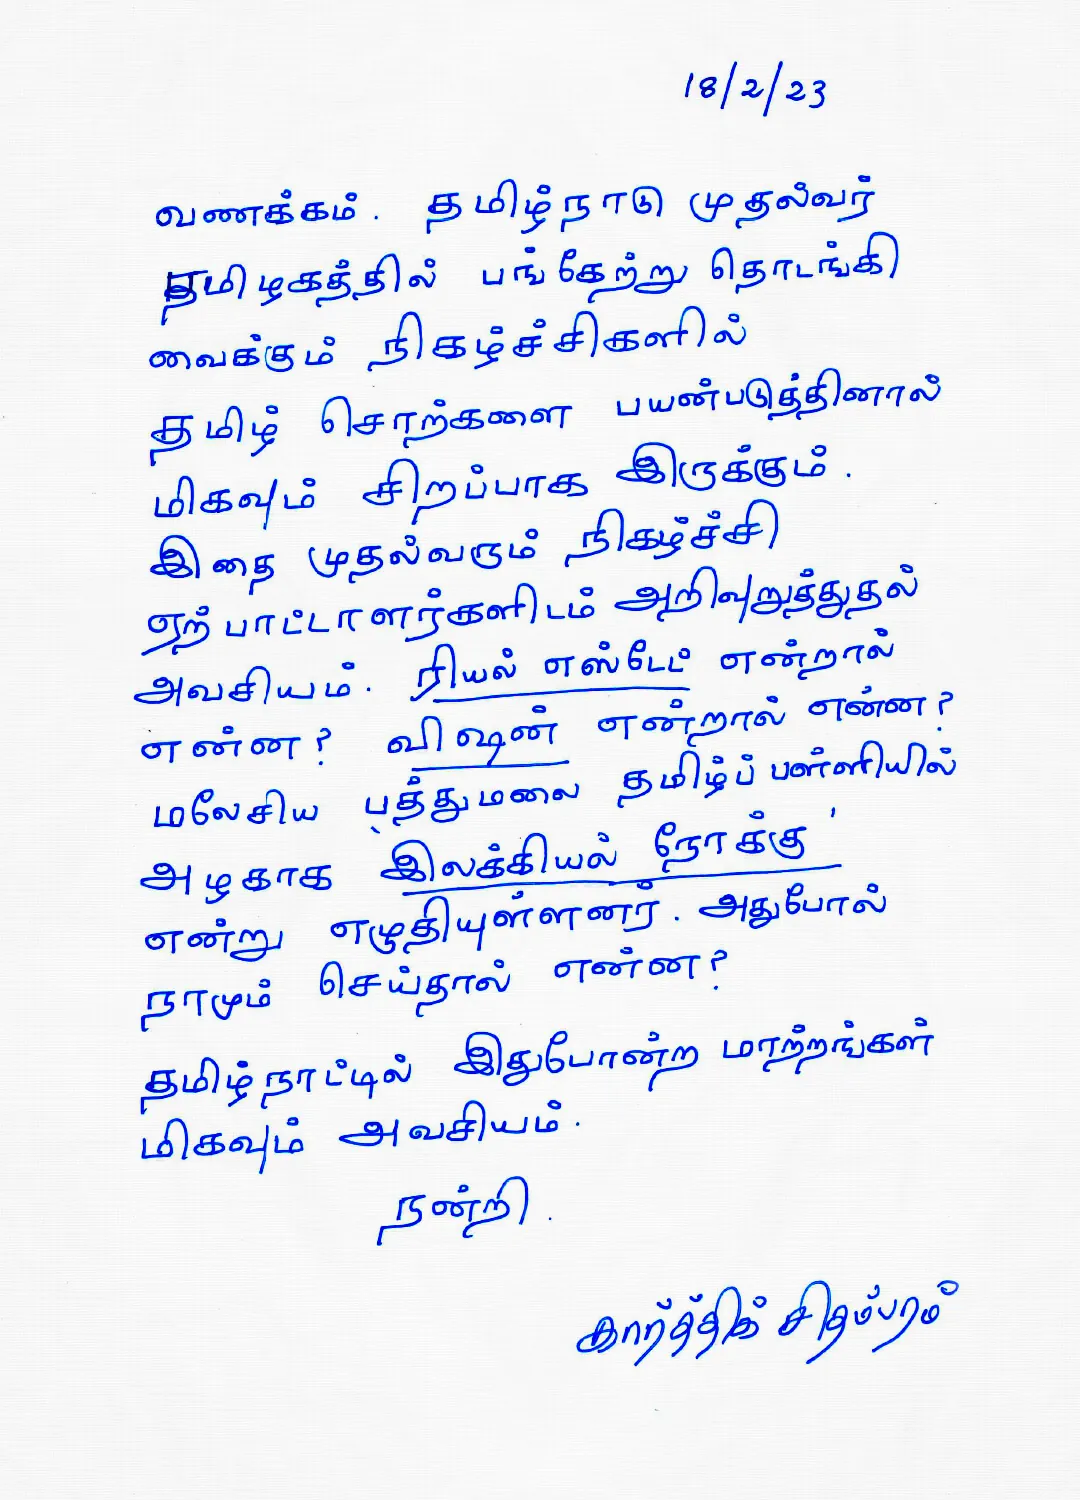 18/2/23
வணக்கம். தமிழ்நாடு முதல்வர்
தமிழகத்தில் பங்கேற்று தொடங்கி
வைக்கும் நிகழ்ச்சிகளில்
தமிழ் சொற்களை பயன்படுத்தினால்
மிகவும் சிறப்பாக இருக்கும்.
இதை முதல்வரும் நிகழ்ச்சி
ஏற்பாட்டாளர்களிடம் அறிவுறுத்துதல்
அவசியம். ரியல் எஸ்டேட் என்றால்
என்ன? விஷன் என்றால் என்ன?
மலேசிய பத்துமலை தமிழ்ப் பள்ளியில்
அழகாக இலக்கியல் நோக்கு'
என்று எழுதியுள்ளனர். அதுபோல்
நாமும் செய்தால் என்ன?
தமிழ்நாட்டில் இதுபோன்ற மாற்றங்கள்
மிகவும் அவசியம்.
நன்றி.
கார்த்திக் சிதம்பரம்